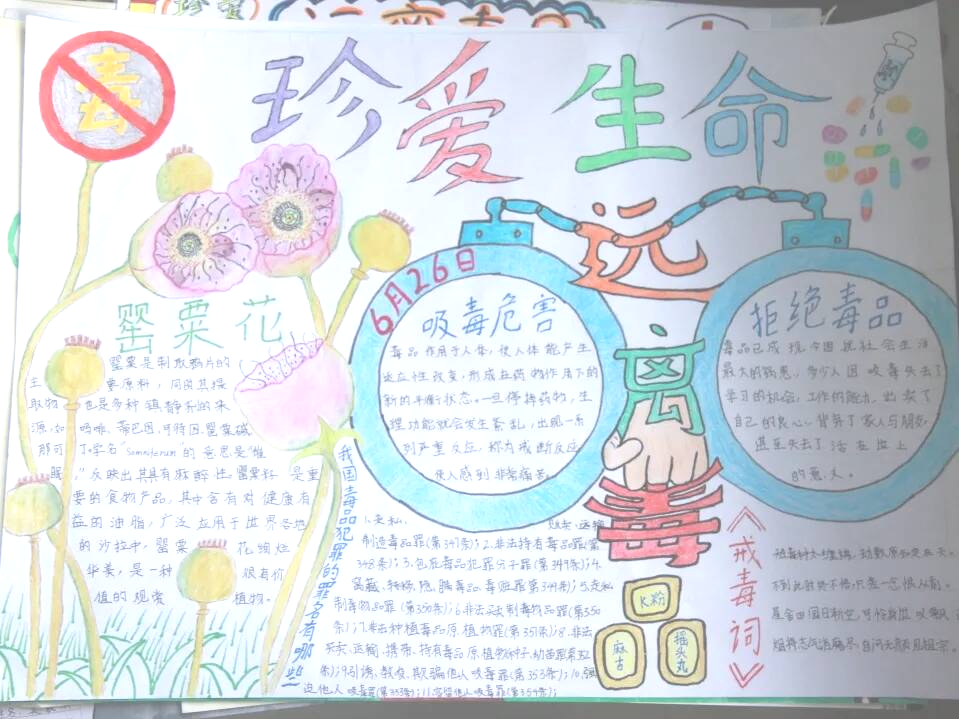 毒
珍爱生命
远离毒
6月26日
罂粟花
罂粟是制取鸦片的
主 要原料，同时其提
取物 也是多种镇静剂的来
源，如 吗啡、蒂巴因、可待因、罂粟碱、
那可丁。学名“ 的意思是“催
眠”，反映出其具有麻醉性。罂粟籽 是重
要的食物产品，其中含有对健康有
益的油脂，广泛应用于世界各地
的沙拉中，罂粟 花绚烂
华美，是一种 很有价
值的观赏 植物。
吸毒危害
毒品作用于人体，使人体能产生
适应性改变，形成在药物作用下的
新的平衡状态。一旦停掉药物，生
理功能就会发生紊乱，出现一系
列严重反应，称为戒断反应，
使人感到非常痛苦。
拒绝毒品
毒品已成 现今因 社会生活
最大的祸患。多少人因 吸毒失去了
学习的机会，工作的能力，出卖了
自己的良心，背弃了家人与朋友，
甚至失去了活在世上
的意义。
我国毒品犯罪的罪名有哪些
1.走私、 贩卖、运输、
制造毒品罪(第347条)；2.非法持有毒品罪(第
348条)；3.包庇毒品犯罪分子罪(第349条)；4.
窝藏、转移、隐瞒毒品、毒赃罪(第349条)；5.走私
制毒物品罪(第350条)；6.非法买卖制毒物品罪(第350
条)；7.非法种植毒品原植物罪(第351条)；8.非法
买卖、运输、携带、持有毒品原植物种子、幼苗罪(第352
条)；9.引诱、教唆、欺骗他人吸毒罪(第353条)；10.强
迫他人吸毒罪(第353条)；11.容留他人吸毒罪(第354条)；
K粉
麻古
摇头丸
《戒毒词》